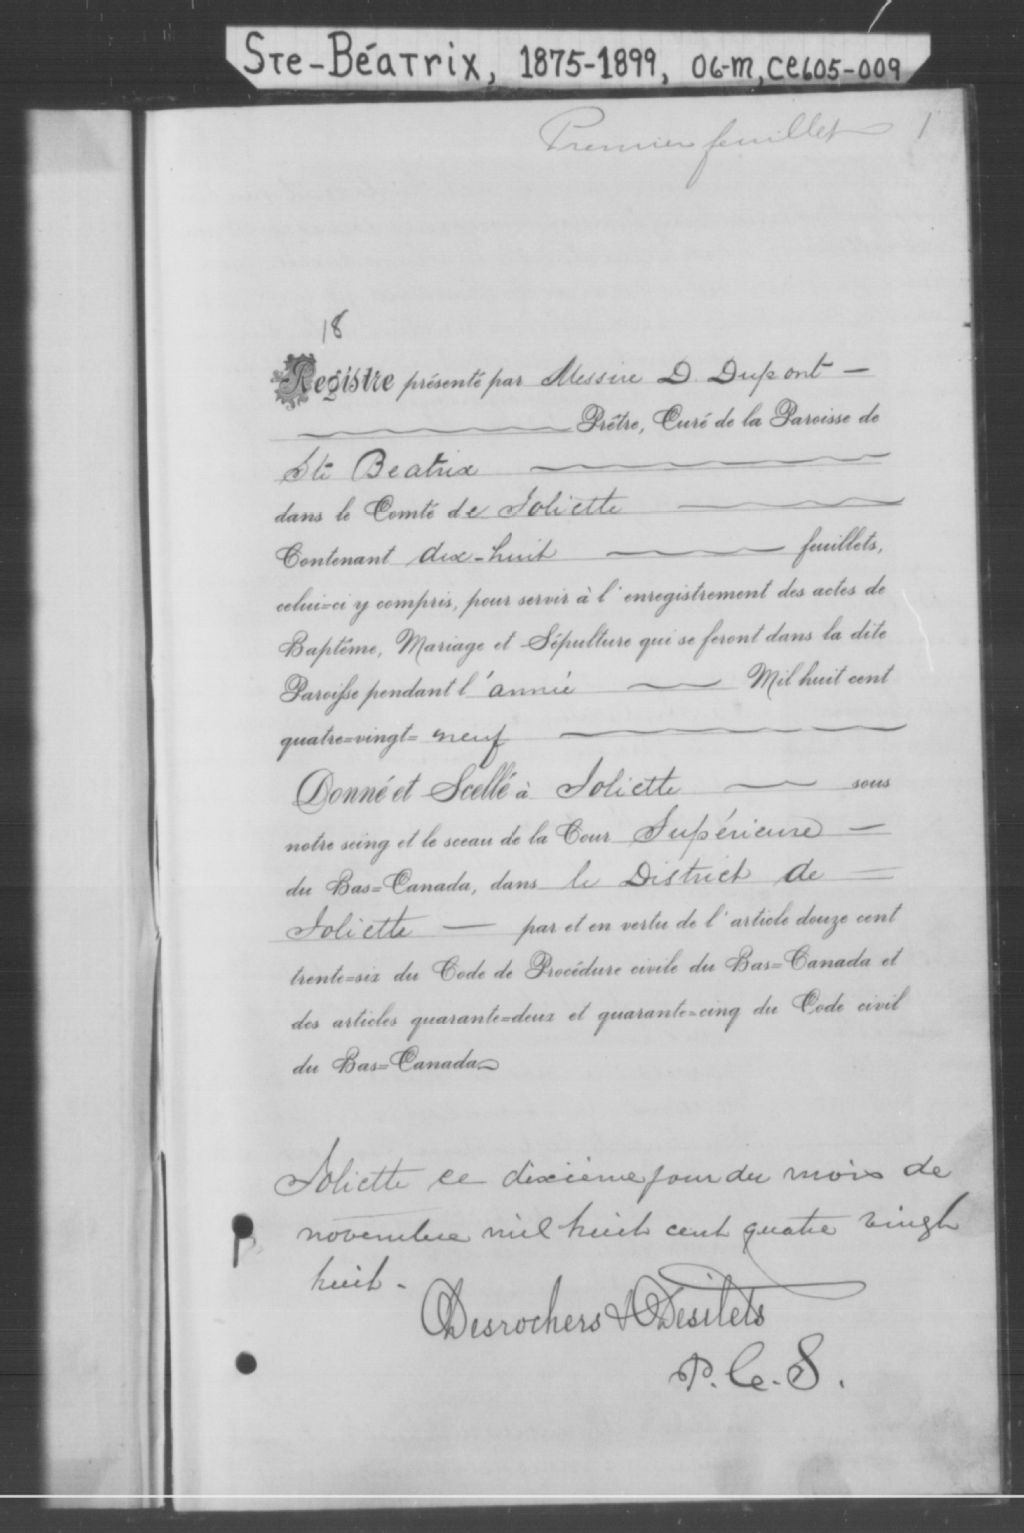 Ste-Béatrix, 1875-1899, 06-M, CE605-009
Premier feuillet 1
18
Registre présenté par Messire D. Dupont
Prêtre, Curé de la Paroisse de
Ste Beatrix
dans le Comté de Joliette
Contenant dix-huit feuillets,
celui=ci y compris, pour servir à l'enregistrement des actes de
Baptême, Mariage et Sépulture qui se feront dans la dite
Paroisse pendant l'année Mil huit cent
quatre=vingt= neuf
Donné et Scellé à Joliette sous
notre seing et le sceau de la Cour Supérieure
du Bas=Canada, dans le District de
Joliette par et en vertu de l'article douze cent
trente=six du Code de Procédure civile du Bas=Canada et
des articles quarante=deux et quarante=cinq du Code civil
du Bas=Canada
Joliette ce dixième jour du mois de
novembre mil huit cent quatre vingt
huit.
Desrochers & Desilets
P. C. S.